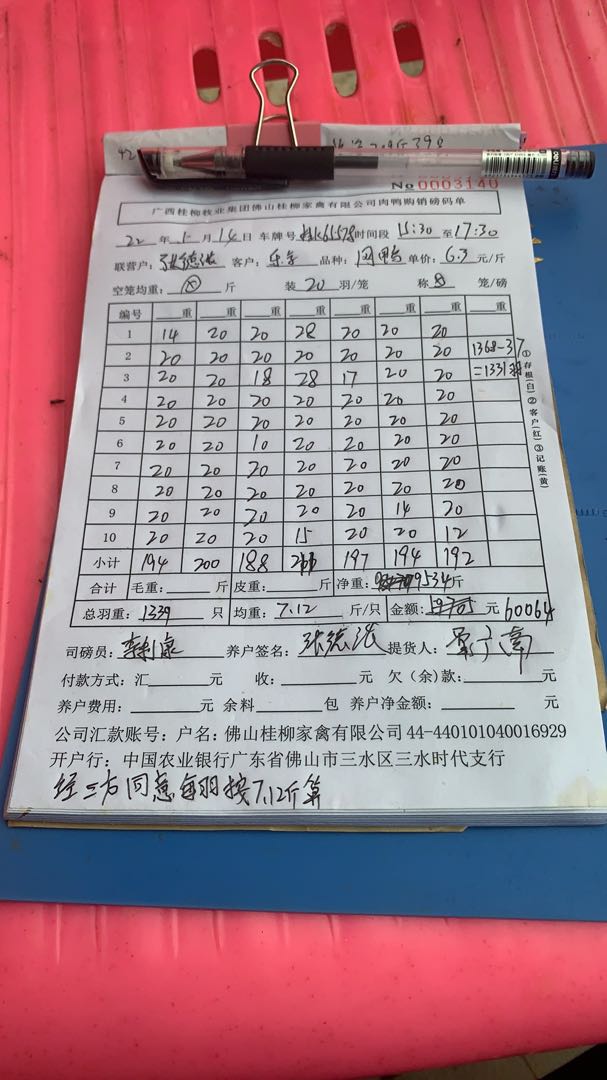 No 0003140
广西桂柳牧业集团佛山桂柳家禽有限公司肉鸭购销磅码单
22 年 1 月 14 日 车牌号 桂K61578 时间段 15:30 至 17:30
联营户: 客户: 品种: 网鸭 单价: 6.3 元/斤
空笼均重: 斤 装 20 羽/笼 称 8 笼/磅
编号 重 重 重 重 重 重 重 重
1 14 20 20 28 20 20 20
2 20 20 20 20 20 20 20 1368-37
3 20 20 18 28 17 20 20 =1331羽
4 20 20 20 20 20 20 20
5 20 20 20 20 20 20 20
6 20 20 10 20 20 20 20
7 20 20 20 20 20 20 20
8 20 20 20 20 20 20 20
9 20 20 20 20 20 14 20
10 20 20 20 15 20 20 12
小计 194 200 188 197 194 192
合计 毛重: 斤 皮重: 斤 净重: 9534 斤
总羽重: 1339 只 均重: 7.12 斤/只 金额: 元 60064
司磅员: 养户签名: 张德浩 提货人:
付款方式: 汇 元 收: 元 欠（余）款: 元
养户费用: 元 余料 包 养户净金额: 元
公司汇款账号: 户名: 佛山桂柳家禽有限公司 44-440101040016929
开户行: 中国农业银行广东省佛山市三水区三水时代支行
经三方同意每羽按7.12斤算
①存根(白)②客户(红)③记账(黄)